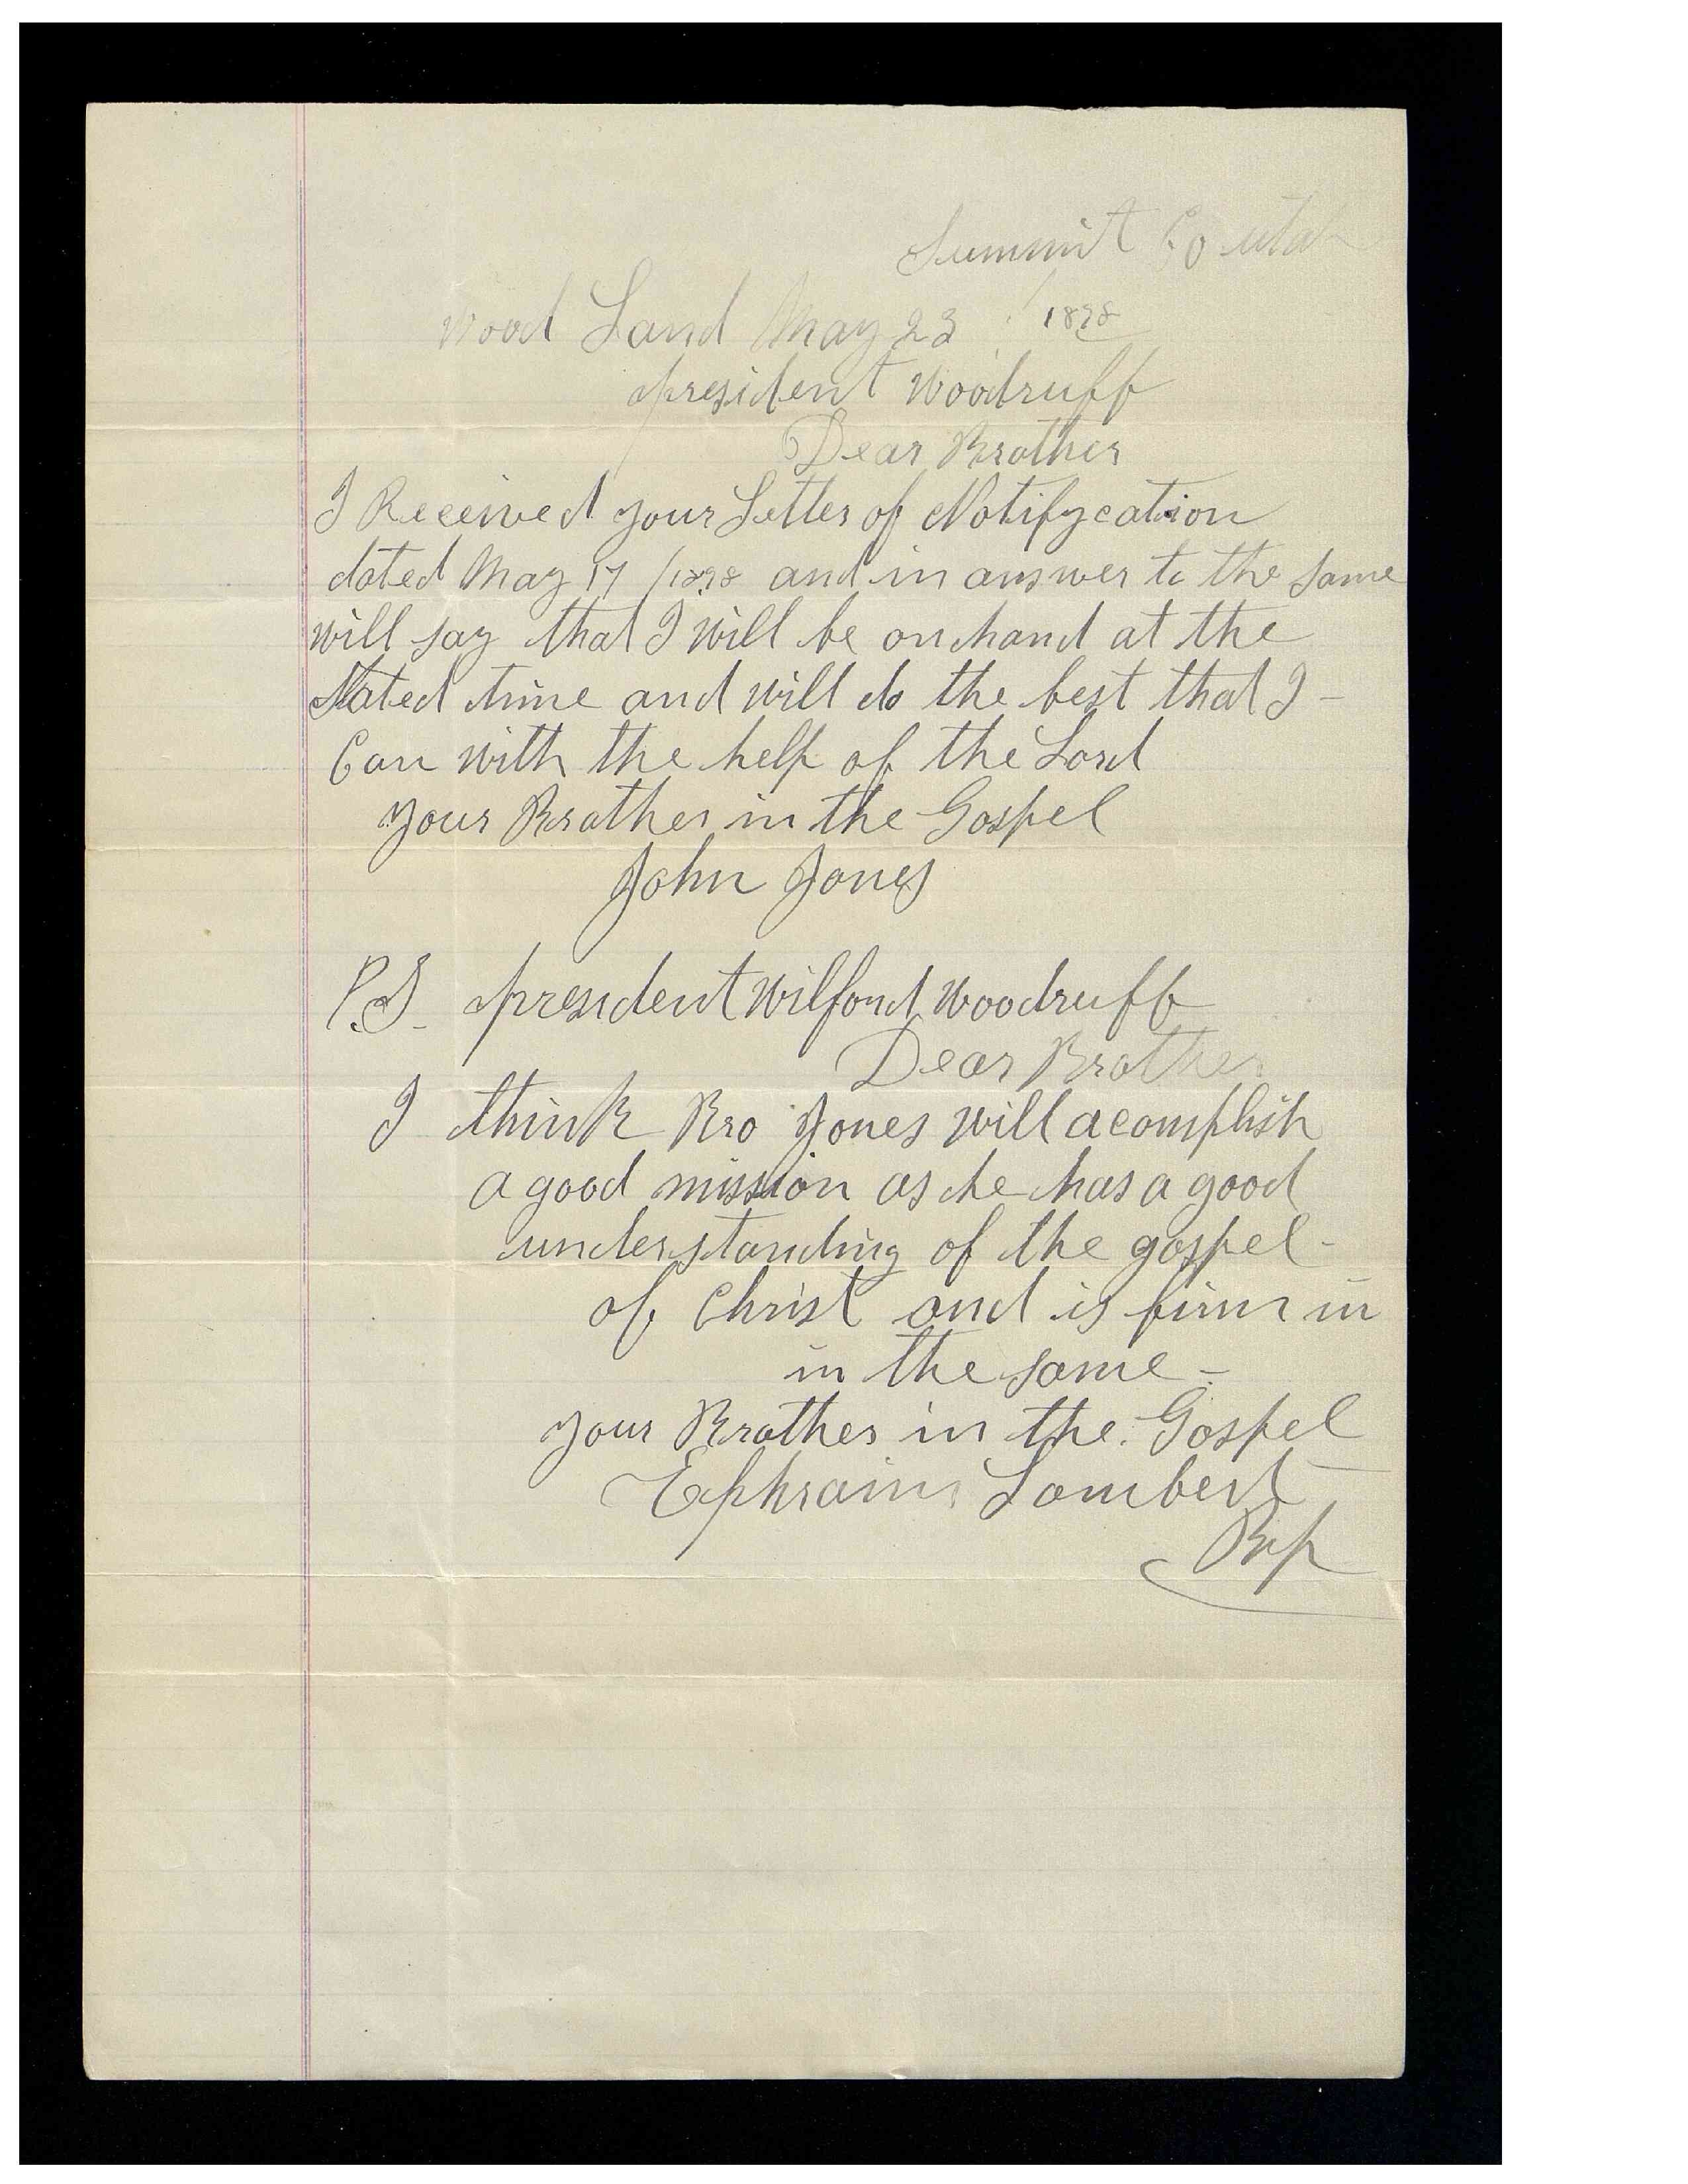 Summit Co utah
Wood Land May 23 / 1898
president Woodruff
Dear Brother
I Received your Letter of Notifycation
dated May 17 /1898 and in answer to the same
will say that I will be on hand at the
Stated time and will do the best that I -
Can with the help of the Lord
your Brother in the Gospel
John Jones
P.S. president Wilford Woodruff
Dear Brother
I think Bro Jones will acomplish
a good mission as he has a good
understanding of the gospel -
of Christ and is firm in
in the same -
your Brother in the Gospel
Ephraim Lambert
Bp